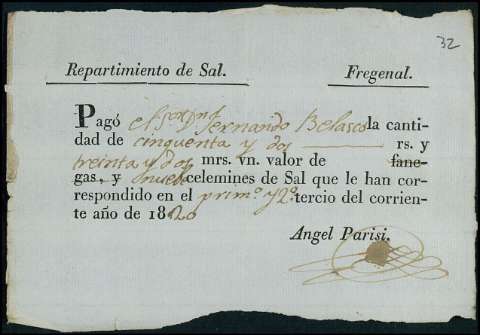 32
Repartimiento de Sal. Fregenal.
Pagó el Fernando Belasco la canti-
dad de cinquenta y dos rs. y
treinta y dos mrs. vn. valor de fane-
gas, y nueve celemines de Sal que le han cor-
respondido en el prim.º y 2.º tercio del corrien-
te año de 1820
Angel Parisi.